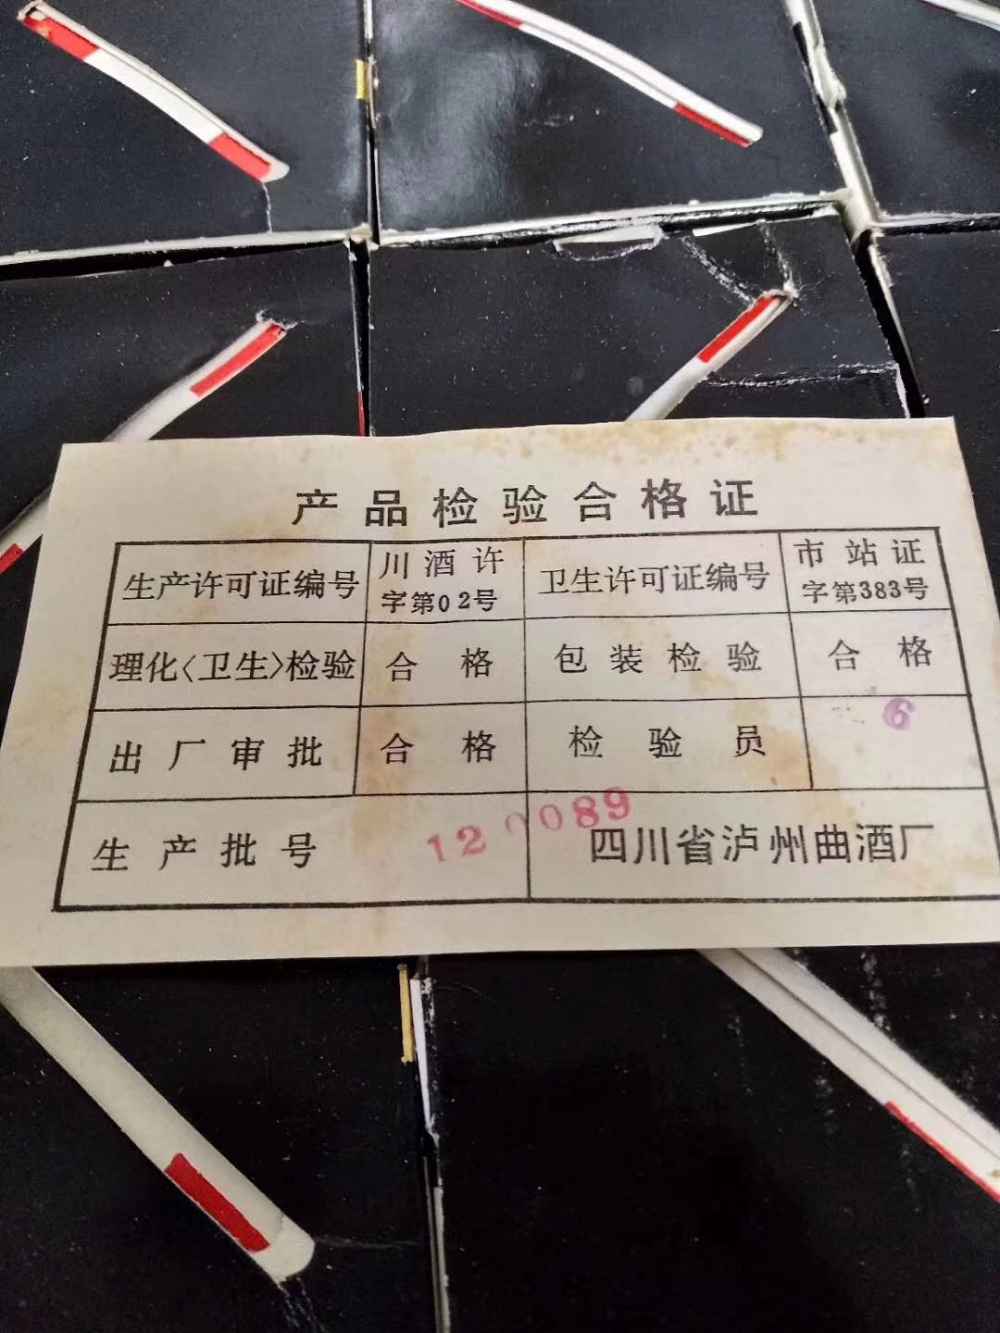 产品检验合格证
生产许可证编号 川酒许字第02号 卫生许可证编号 市站证字第383号
理化〈卫生〉检验 合格 包装检验 合格
出厂审批 合格 检验员 6
生产批号 120089 四川省泸州曲酒厂